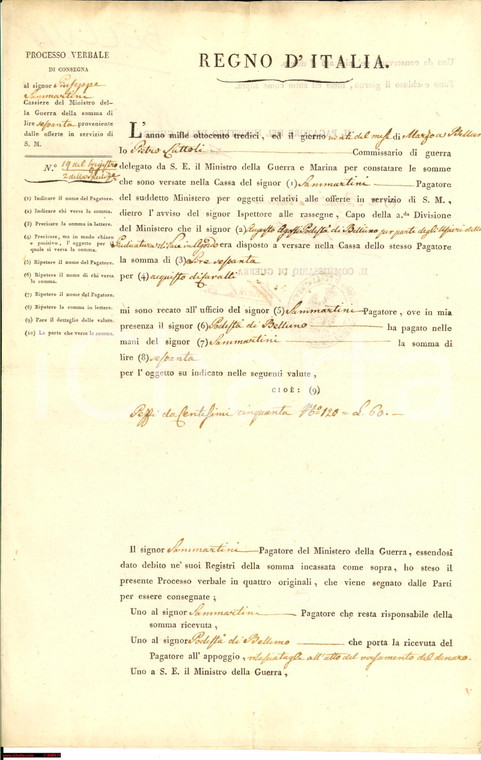 PROCESSO VERBALE
DI CONSEGNA
al signor Giuseppe
Sammartini
Cassiere del Ministro del-
la Guerra della somma di
lire sessanta proveniente
dalle offerte in servizio di
S. M.
N.° 19 del Registro
(1) Indicare il nome del Pagatore.
(2) Indicare chi versa la somma.
(3) Precisare la somma in lettere.
(4) Precisare, ma in modo chiaro
e positivo, l'oggetto per il
quale si versa la somma.
(5) Ripetere il nome del Pagatore.
(6) Ripetere il nome di chi versa
la somma.
(7) Ripetere il nome del Pagatore.
(8) Ripetere la somma in lettere.
(9) Fare il dettaglio delle valute.
(10) La parte che versa la somma.
REGNO D'ITALIA.
L'anno mille ottocento tredici, ed il giorno del mese di Marzo a Belluno
Io Pietro Commissario di guerra
delegato da S. E. il Ministro della Guerra e Marina per constatare le somme
che sono versate nella Cassa del signor (1) Sammartini Pagatore
del suddetto Ministero per oggetti relativi alle offerte in servizio di S. M.,
dietro l'avviso del signor Ispettore alle rassegne, Capo della 2.da Divisione
del Ministero che il signor (2) Augusto Agosti Podestà di Belluno per parte degli
era disposto a versare nella Cassa dello stesso Pagatore
la somma di (3) Lire sessanta
per (4) acquisto di cavalli
mi sono recato all'ufficio del signor (5) Sammartini Pagatore, ove in mia
presenza il signor (6) Podestà di Belluno ha pagato nelle
mani del signor (7) Sammartini la somma di
lire (8) sessanta
per l'oggetto su indicato nelle seguenti valute,
CIOÈ: (9)
Pezzi da Centesimi cinquanta N.° 120 = L. 60.—
Il signor Sammartini Pagatore del Ministero della Guerra, essendosi
dato debito ne' suoi Registri della somma incassata come sopra, ho steso il
presente Processo verbale in quattro originali, che viene segnato dalle Parti
per essere consegnate;
Uno al signor Sammartini Pagatore che resta risponsabile della
somma ricevuta,
Uno al signor Podestà di Belluno che porta la ricevuta del
Pagatore all'appoggio, rilasciatagli all'atto del versamento del denaro.
Uno a S. E. il Ministro della Guerra,